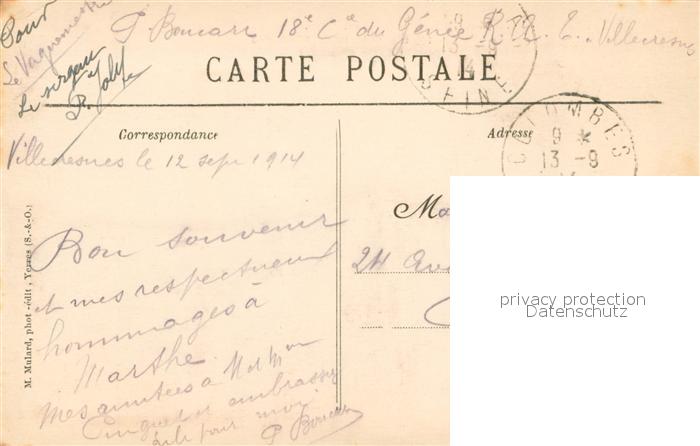 Pour
Le Vaguemestre
Le sergent
P. Boucart 18e Cie du Génie R. A. E. Villecresnes
CARTE POSTALE
SEINE
Correspondance
Adresse
COLOMBES
9 *
13 -9
Villecresnes le 12 sept 1914
Bon souvenir
et mes respectueux
hommages à
Marthe
Mes amitiés à
embrassez
pour moi
P Boucart
24 Ave
M. Mulard, phot.-édit., Yerres (S.-&-O.)
privacy protection
Datenschutz